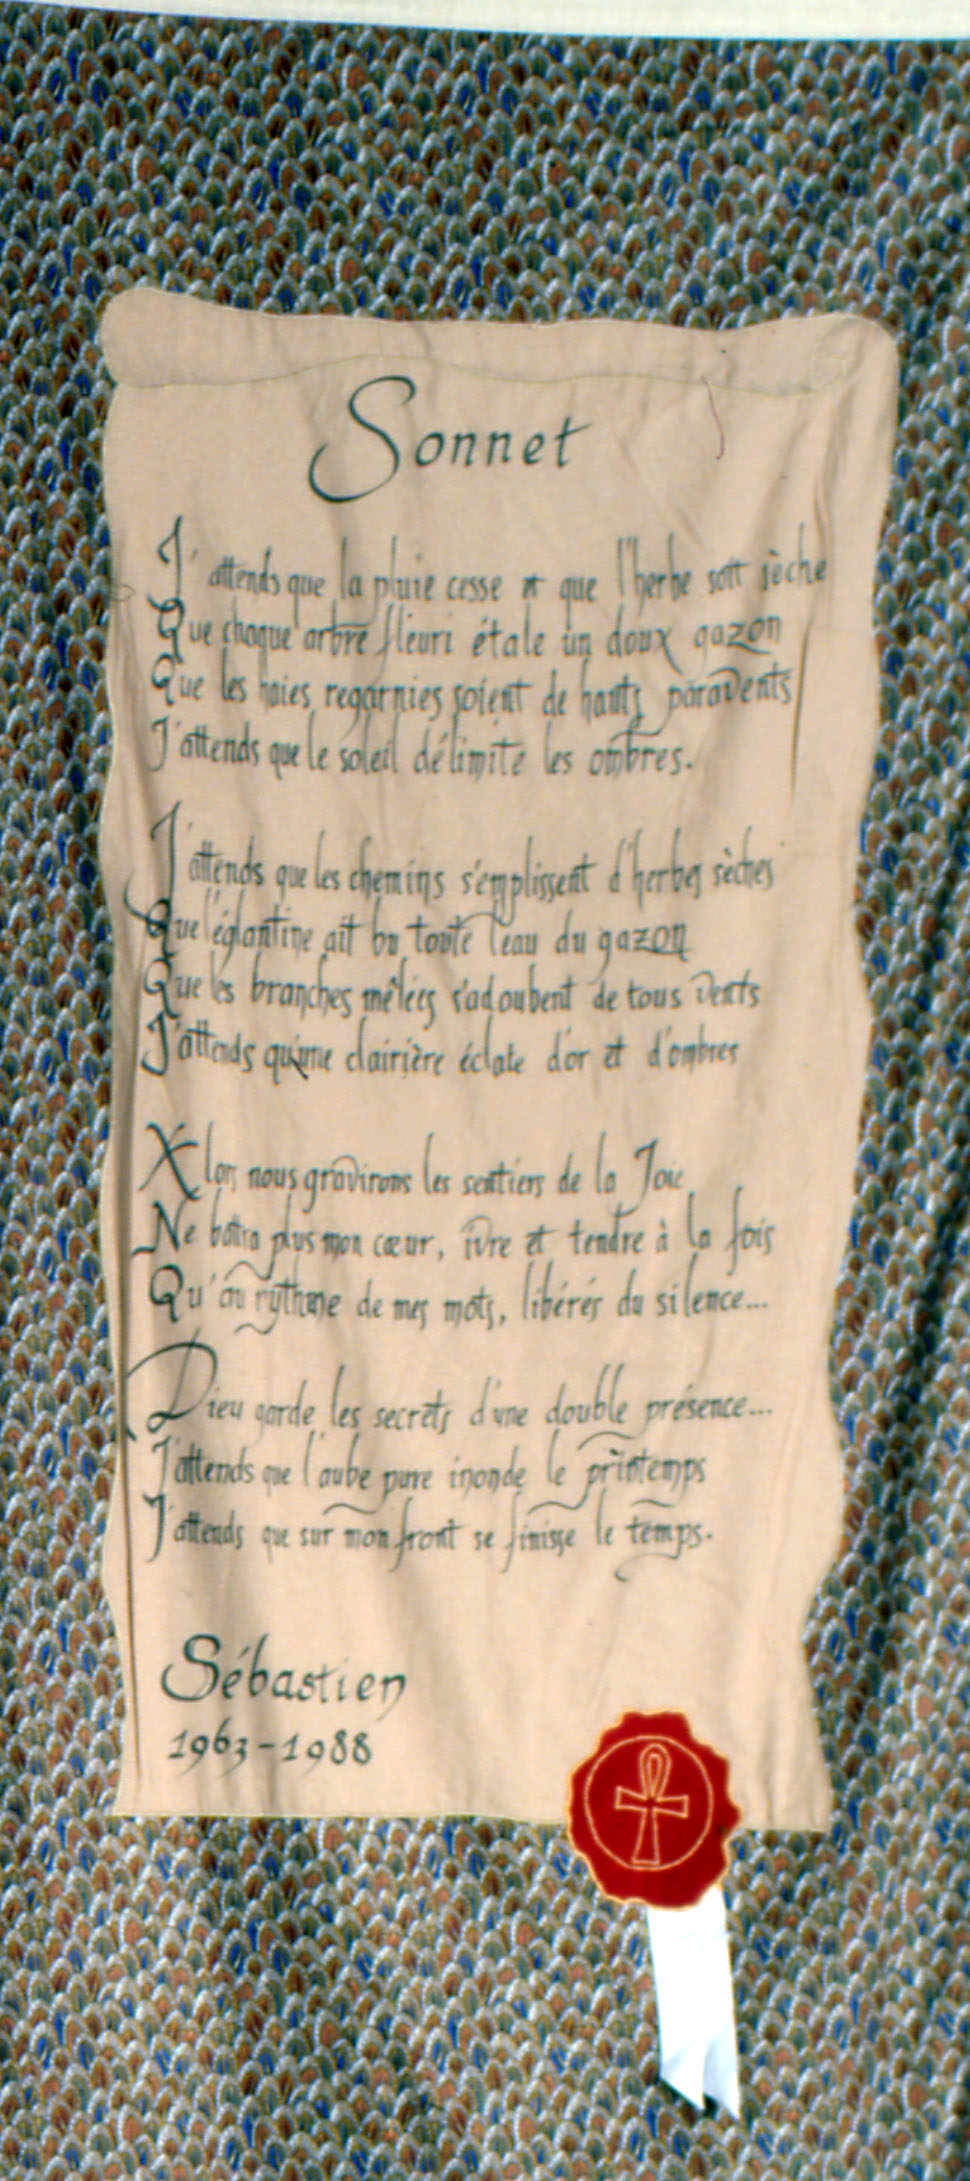 Sonnet
J'attends que la pluie cesse et que l'herbe soit sèche
Que chaque arbre fleuri étale un doux gazon
Que les haies regarnies soient de hauts paravents
J'attends que le soleil délimite les ombres.
J'attends que les chemins s'emplissent d'herbes sèches
Que l'églantine ait bu toute l'eau du gazon
Que les branches mêlées s'adoubent de tous vents
J'attends qu'une clairière éclate d'or et d'ombres
Alors nous gravirons les sentiers de la Joie
Ne battra plus mon cœur, ivre et tendre à la fois
Qu'au rythme de mes mots, libérés du silence...
Dieu garde les secrets d'une double présence...
J'attends que l'aube pure inonde le printemps
J'attends que sur mon front se finisse le temps.
Sébastien
1963-1988